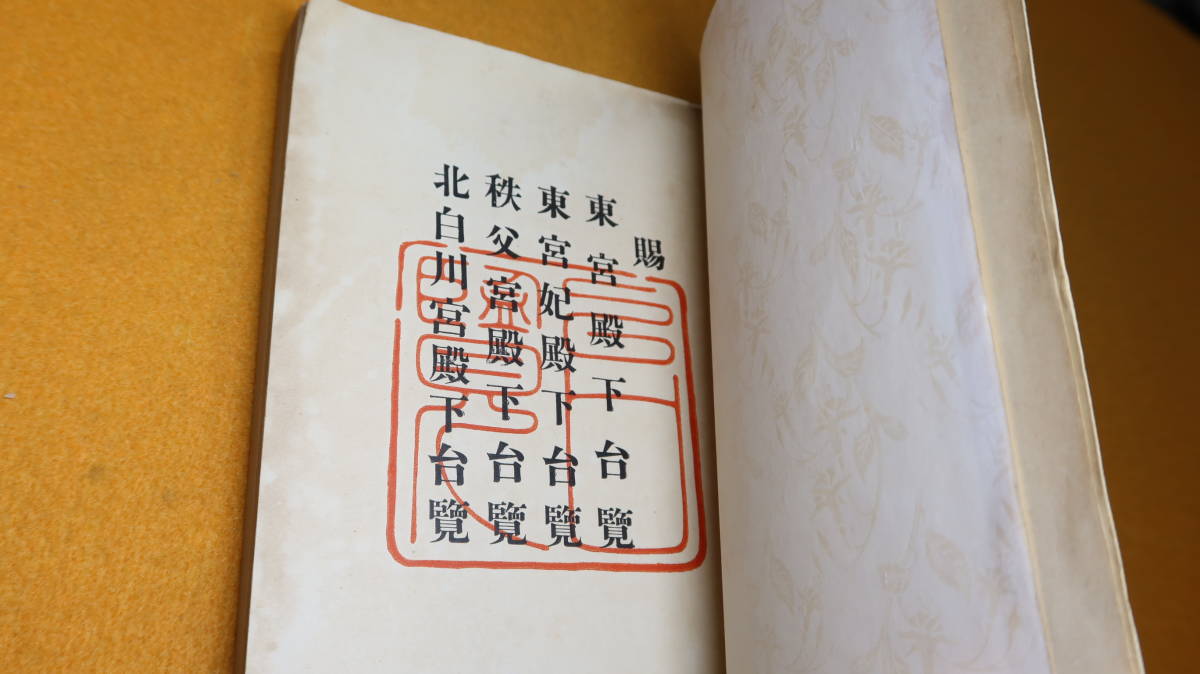 賜
東宮殿下台覽
東宮妃殿下台覽
秩父宮殿下台覽
北白川宮殿下台覽